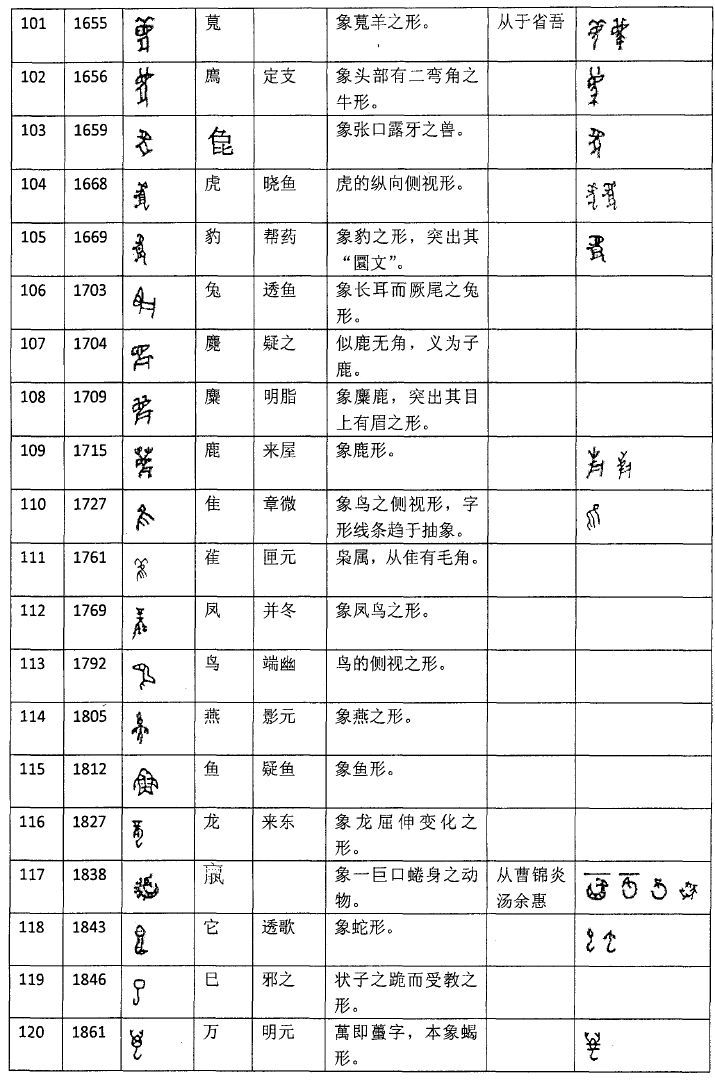 101 1655 萈 象萈羊之形。 从于省吾
102 1656 廌 定支 象头部有二弯角之
牛形。
103 1659 象张口露牙之兽。
104 1668 虎 晓鱼 虎的纵向侧视形。
105 1669 豹 帮药 象豹之形，突出其
“圜文”。
106 1703 兔 透鱼 象长耳而厥尾之兔
形。
107 1704 麑 疑之 似鹿无角，义为子
鹿。
108 1709 麋 明脂 象麋鹿，突出其目
上有眉之形。
109 1715 鹿 来屋 象鹿形。
110 1727 隹 章微 象鸟之侧视形，字
形线条趋于抽象。
111 1761 雈 匣元 枭属，从隹有毛角。
112 1769 凤 并冬 象凤鸟之形。
113 1792 鸟 端幽 鸟的侧视之形。
114 1805 燕 影元 象燕之形。
115 1812 鱼 疑鱼 象鱼形。
116 1827 龙 来东 象龙屈伸变化之
形。
117 1838 象一巨口蜷身之动 从曹锦炎
物。 汤余惠
118 1843 它 透歌 象蛇形。
119 1846 巳 邪之 状子之跪而受教之
形。
120 1861 万 明元 萬即蠆字，本象蝎
形。